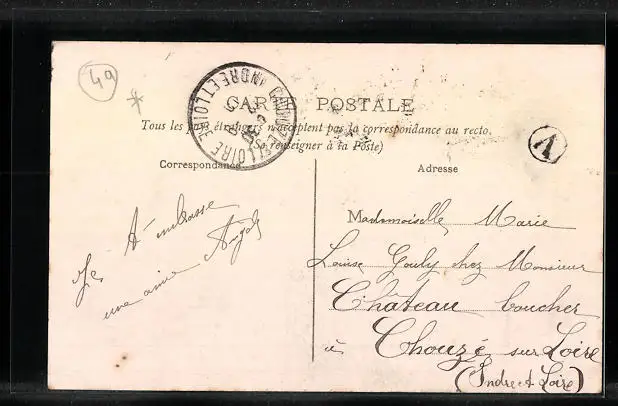 49
CHOUZÉ S/ LOIRE
INDRE ET LOIRE
CARTE POSTALE
Tous les pays étrangers n'acceptent pas la correspondance au recto.
(Se renseigner à la Poste)
Correspondance
Adresse
A
Je t'embrasse
une amie
Mademoiselle Marie
Louise Gouly chez Monsieur
Château boucher
à Chouzé sur Loire
(Indre et Loire)